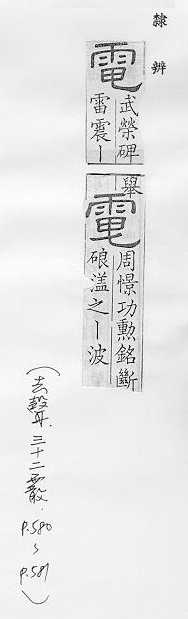 隸辨
電
武榮碑
雷震丨
舉
電
周憬功勳銘斷
硠溘之丨波
(去聲. 三十二霰. p.580~p.581)